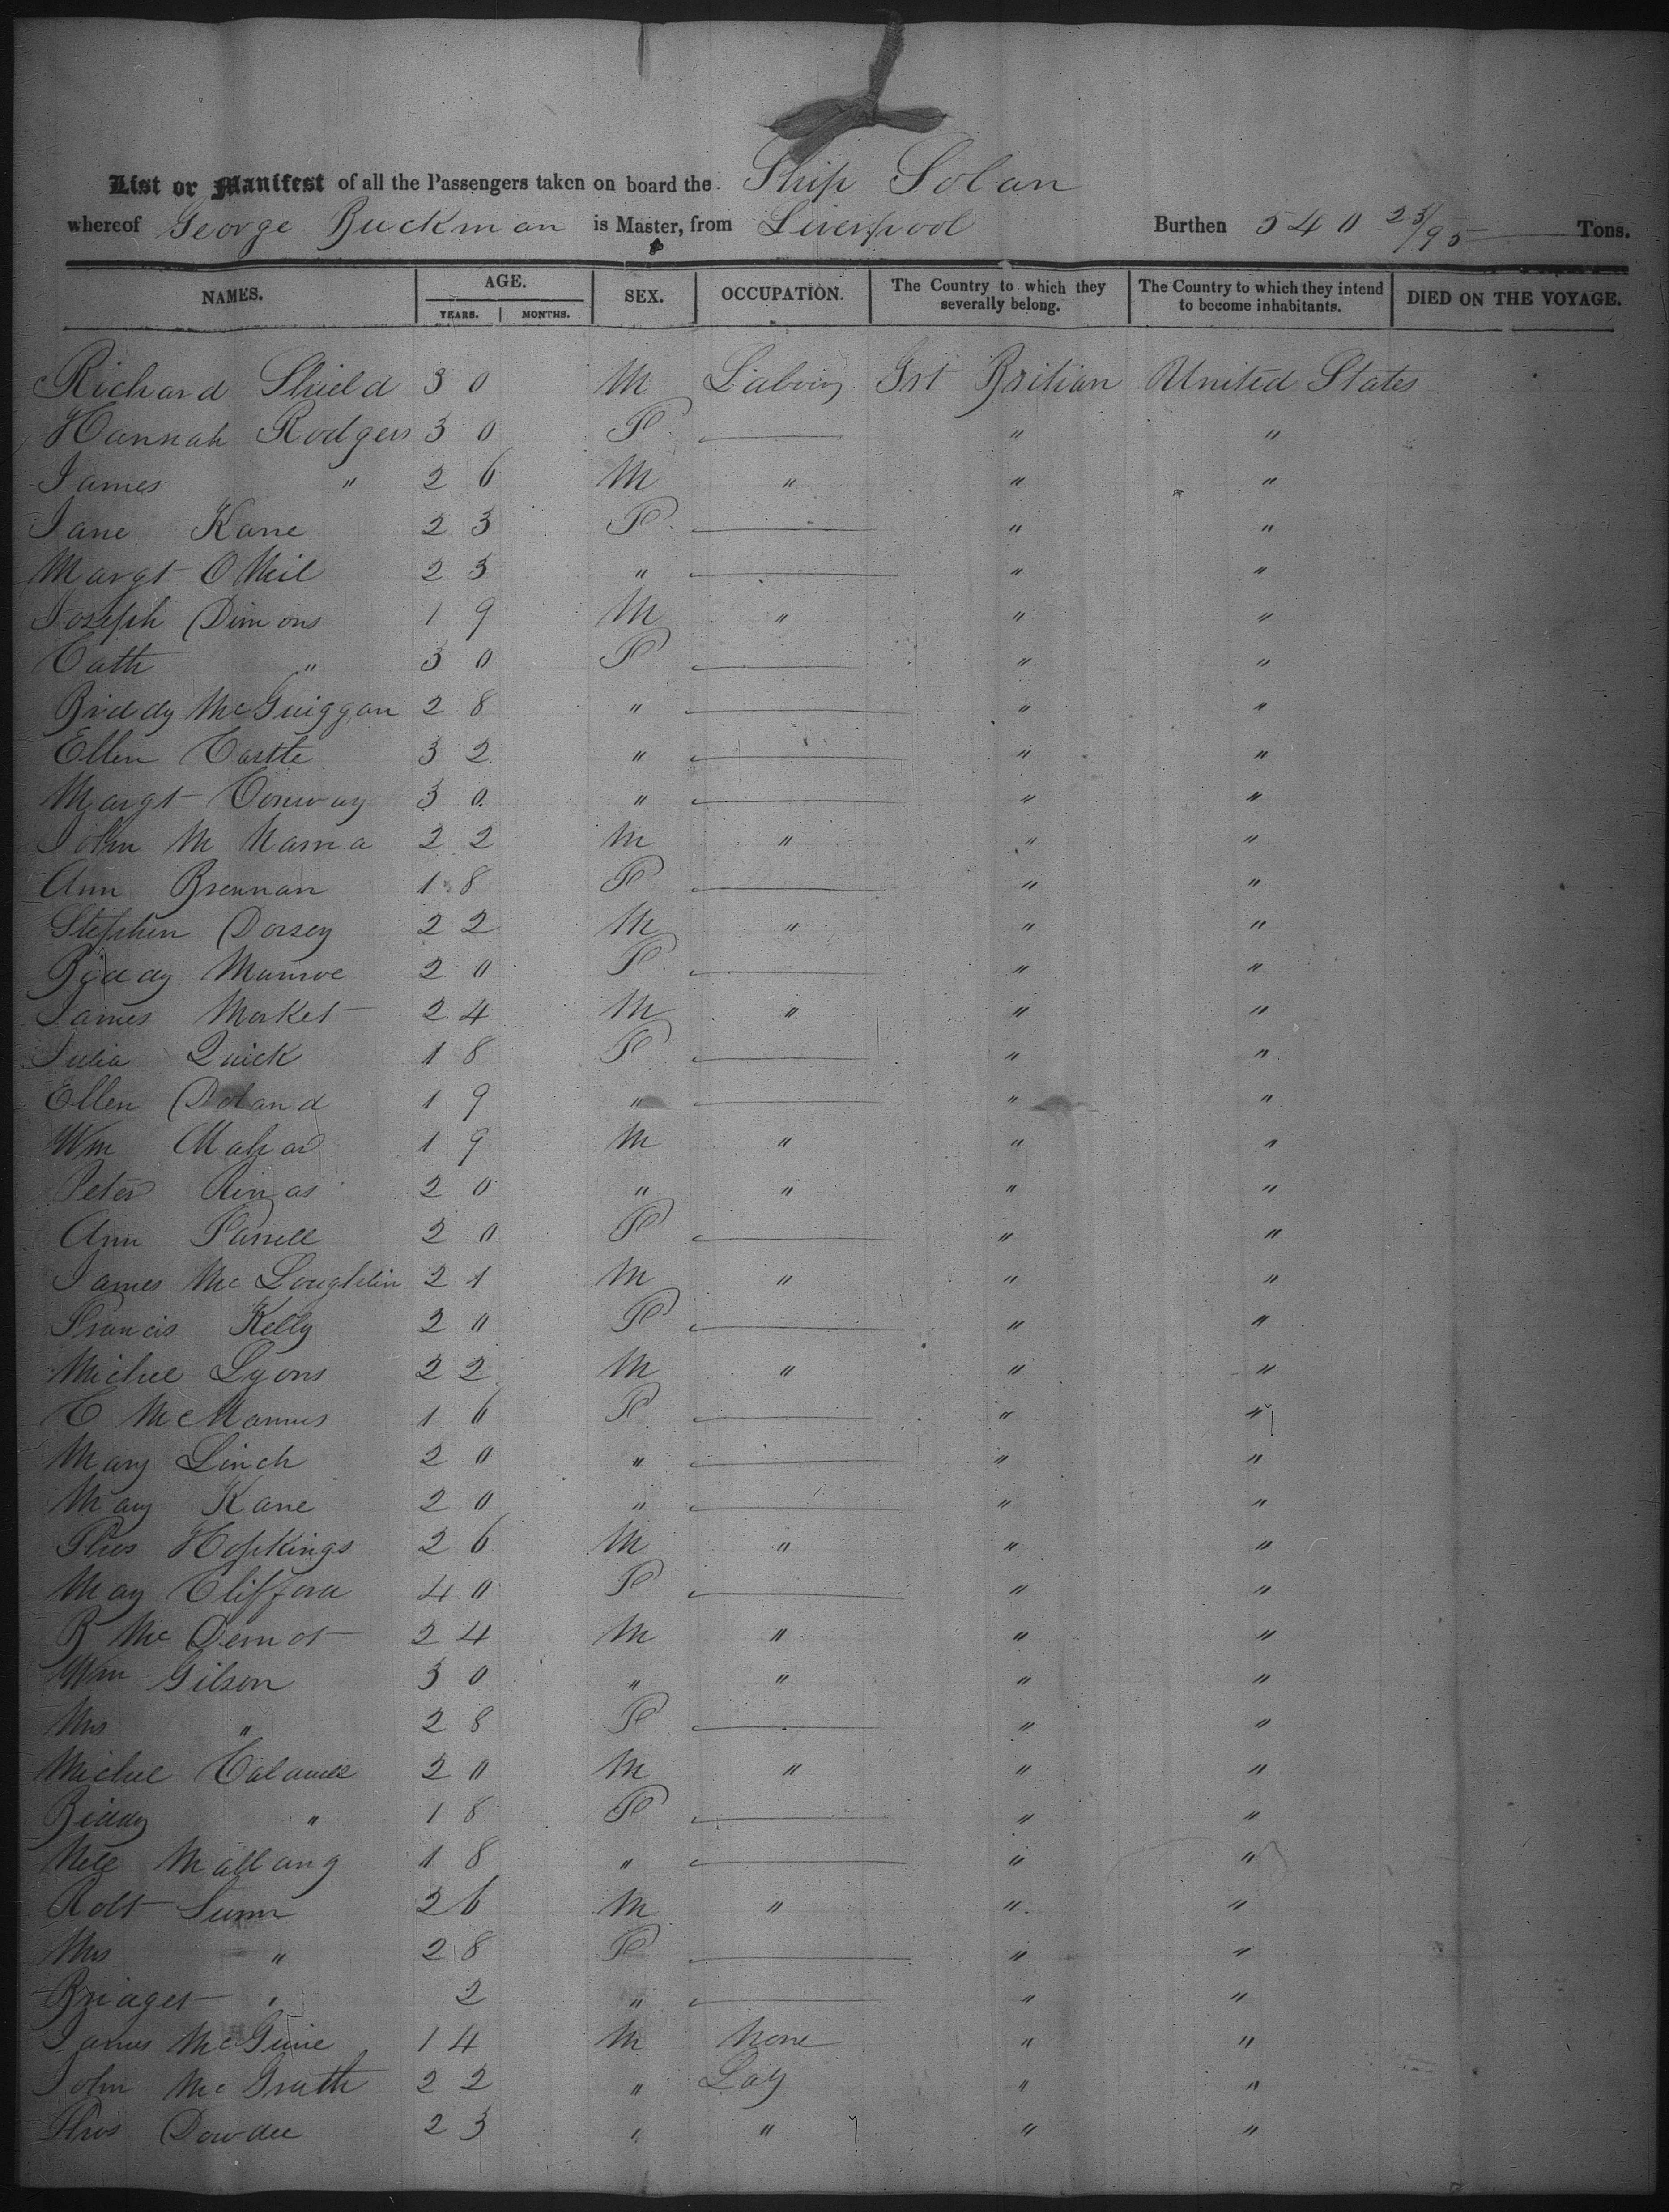 List or Manifest of all the Passengers taken on board the Ship Solan
whereof George Buckman is Master, from Liverpool Burthen 540 23/95 Tons.
NAMES. AGE. YEARS. MONTHS. SEX. OCCUPATION. The Country to which they severally belong. The Country to which they intend to become inhabitants. DIED ON THE VOYAGE.
Richard Shield 30 M Grt Britian United States
Hannah Rodgers 30 F — " "
James " 26 M " " "
Jane Kane 23 F — " "
Margt O Neil 23 " — " "
Joseph Dimons 19 M " " "
Cath " 30 F — " "
Biddy McGuiggan 28 " — " "
Ellen Castle 32 " — " "
Margt Conway 30 " — " "
John M Nama 22 M " " "
Ann Brennan 18 F — " "
Stephen Dorsey 22 M " " "
Biddy Munroe 20 F — " "
James Morket 24 M " " "
Julia Quick 18 F — " "
Ellen Doland 19 " — " "
Wm Mahar 19 M " " "
Peter 20 " " " "
Ann Farrell 20 F — " "
James McLoughlin 21 M " " "
Francis Kelly 20 F — " "
Michel Lyons 22 M " " "
C McMannus 16 F — " "
Mary Linch 20 " — " "
Mary Kane 20 " — " "
Thos Hopkings 26 M " " "
Mary Clifford 40 F — " "
B McDermot 24 M " " "
Wm Gilson 30 " " " "
Mrs " 28 F — " "
Michel 20 M " " "
Biddy " 18 F — " "
Nell Mallang 18 " — " "
Robt 26 M " " "
Mrs " 28 F — " "
Bridget " 2 " — " "
James McGuire 14 M None " "
John McGrath 22 " Lab " "
Thos Dowdee 23 " " " "